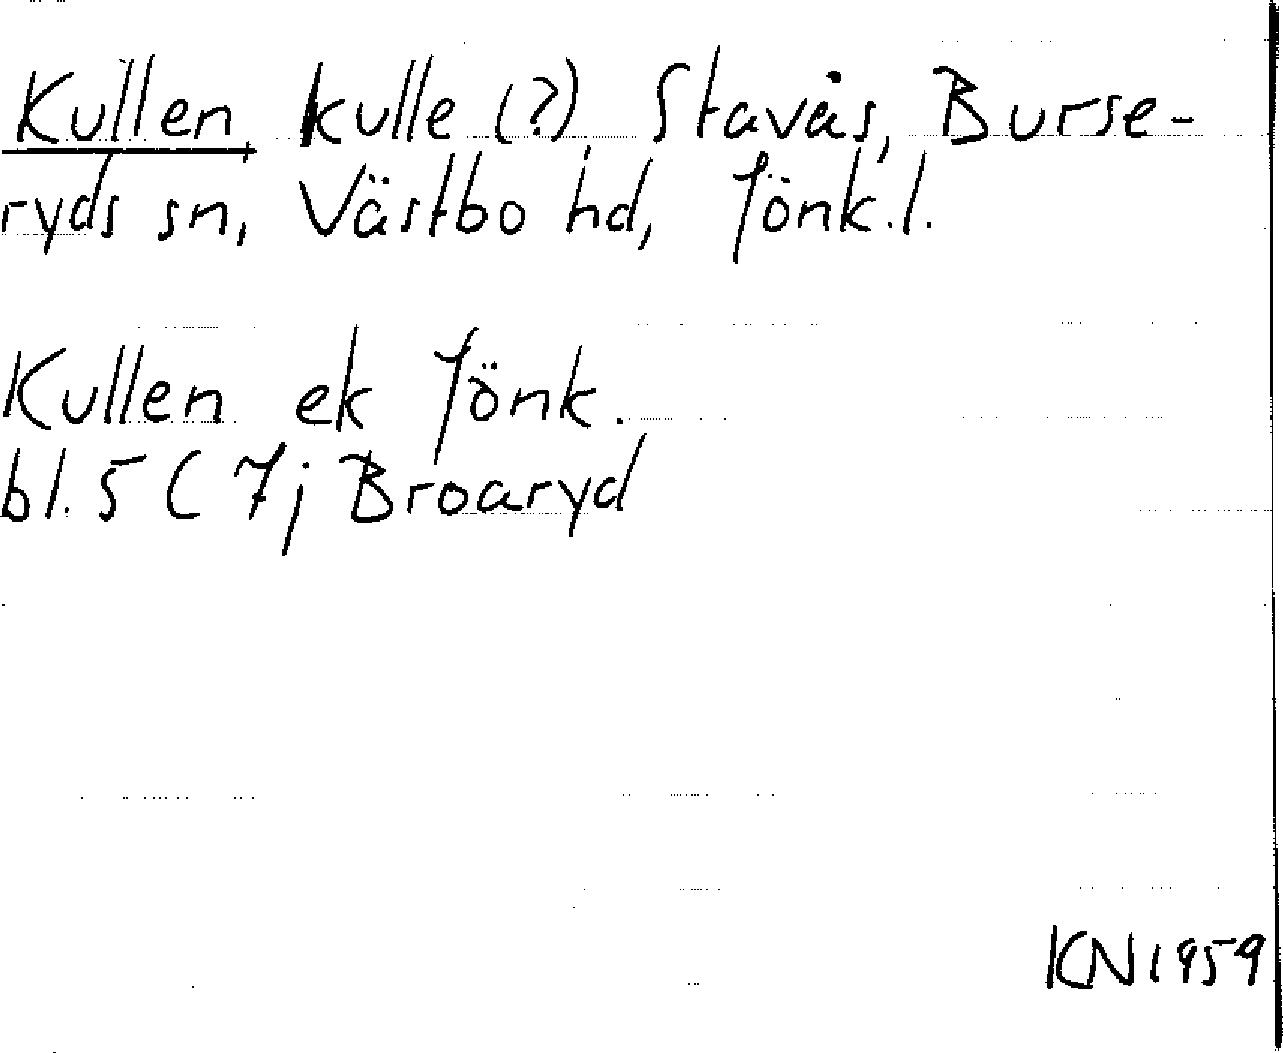 Kullen kulle (?) Stavås, Burse-
ryds sn, Västbo hd, Jönk.l.
Kullen ek Jönk.
bl. 5 C 7j Broaryd
KN 1959